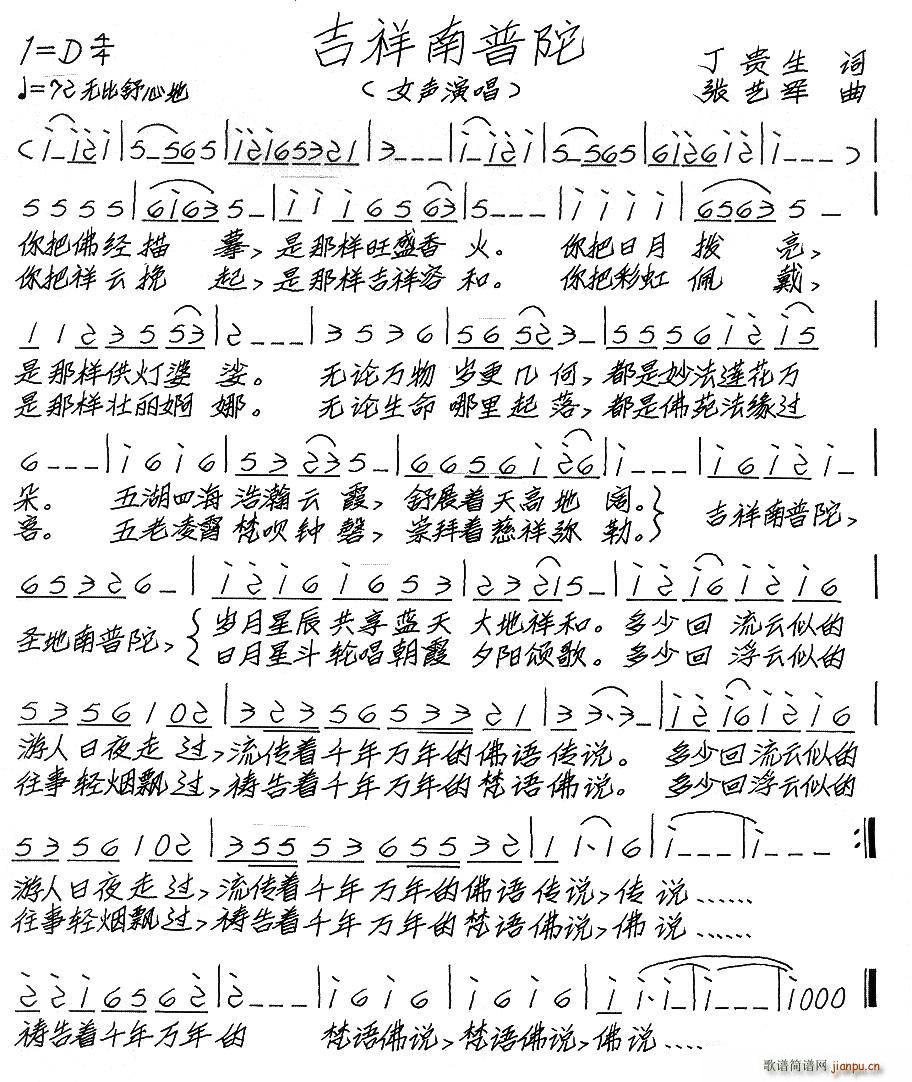 吉祥南普陀
1=D 4/4
丁贵生 词
♩=72 无比舒心地
（女声演唱）
张艺军 曲
(i i2i|5-565|i2i65321|3---|i-i2i|5-565|6i26i2|i---)|
5555|6i635-|iii6563|5---|iiii|65635-
你把佛经描 摹，是那样旺盛香 火。 你把日月 拨 亮，
你把祥云挽 起，是那样吉祥容 和。 你把彩虹 佩 戴，
1123553|2---|3536|565523-|5556i2i5|
是那样供灯婆 娑。 无论万物 岁更几 何，都是妙法莲花万
是那样壮丽婀 娜。 无论生命 哪里起 落，都是佛苑法缘过
6---|i6i6|53235-|6656i26|i---|i6i2i-|
朵。 五湖四海 浩瀚云 霞，舒展着天高地 阔。 吉祥南普陀，
客。 五老凌霄 梵呗钟 磬，崇拜着慈祥弥 勒。
65326-|i2i6i653|232i5-|i2i6i2i6|
圣地南普陀， 岁月星辰 共享蓝天 大地祥和。多少回 流云似的
日月星斗 轮唱朝霞 夕阳颂歌。多少回 浮云似的
5356102|3235653321|33·3-|i2i6i2i6|
游人日夜走 过，流传着千年万年的佛语传说。 多少回流云似的
往事轻烟飘 过，祷告着千年万年的梵语佛说。 多少回浮云似的
5356102|3555365532|1i·i6|i---|i---:‖
游人日夜走 过，流传着千年万年的佛语传说，传说……
往事轻烟飘 过，祷告着千年万年的梵语佛说，佛说……
22i6562|2---|i6i6|i6i6|ii·i|i---|i000‖
祷告着千年万年的 梵语佛说，梵语佛说，佛说……
歌谱简谱网
jianpu.cn